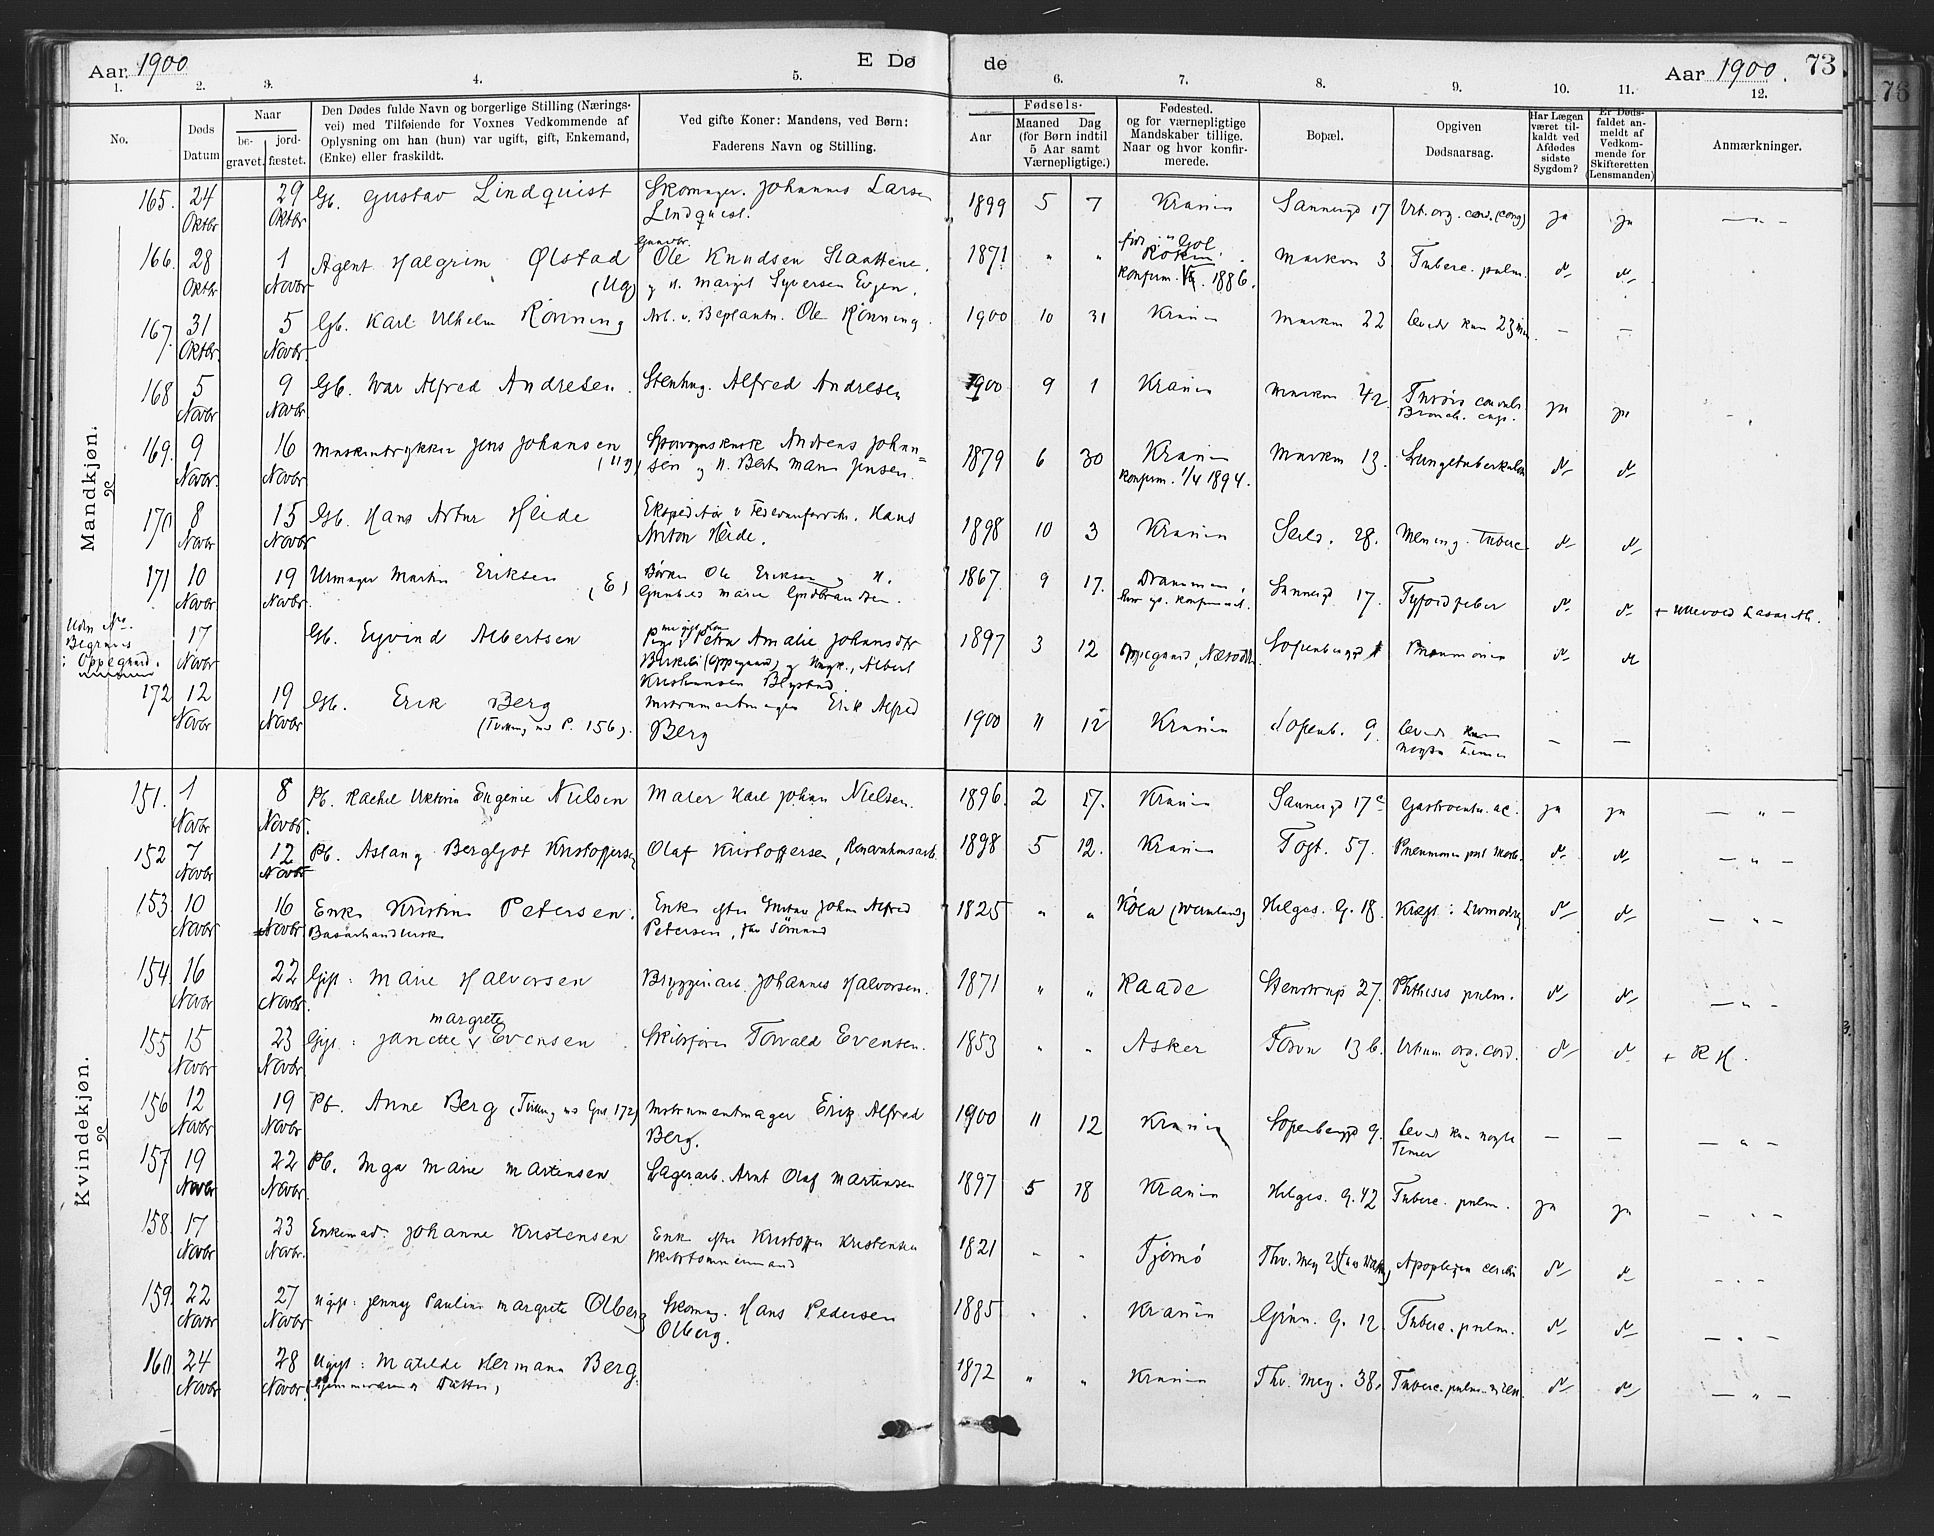 Aar 1900 E Dø de Aar 1900. 73
76
1. 2. 3. 4. 5. 6. 7. 8. 9. 10. 11. 12.
No. Døds Datum Naar be-gravet. jord-fæstet.
Den Dødes fulde Navn og borgerlige Stilling (Nærings-
vei) med Tilføiende for Voxnes Vedkommende af
Oplysning om han (hun) var ugift, gift, Enkemand,
(Enke) eller fraskildt.
Ved gifte Koner: Mandens, ved Børn:
Faderens Navn og Stilling.
Fødsels-
Aar Maaned Dag
(for Børn indtil
5 Aar samt
Værnepligtige.)
Fødested.
og for værnepligtige
Mandskaber tillige.
Naar og hvor konfir-
merede.
Bopæl.
Opgiven
Dødsaarsag.
Har Lægen
været til-
kaldt ved
Afdødes
sidste
Sygdom?
Er Døds-
faldet an-
meldt af
Vedkom-
mende for
Skifteretten
(Lensmanden)
Anmærkninger.
Mandkjøn.
165. 24 29 Gb. Gustav Lindquist Skomager. Johannes Larsen 1899 5 7 Kra­nia Sannergd 17 ja ja — " —
Oktbr Oktbr Lindquist.
166. 28 1 Agent Halgrim Ølstad Ole Knudsen 1871 " " Gol Markvn 3 Tuberc. pulm. do do
Oktbr Novbr (Ug) og H. Margit Syversen konfirm. 1886.
167. 31 5 Gb. Karl Vilhelm Rønning Arb. v. Beplantn. Ole Rønning. 1900 10 31 Kra­nia Markvn 22 levede kun 23 min — —
Oktbr Novbr
168 5 9 Gb. Ivar Alfred Andresen. Stenhug. Alfred Andresen 1900 9 1 Kra­nia Markvn 42 ja ja
Novbr Novbr
169. 9 16 Maskintrykker Jens Johansen Andreas Johan= 1879 6 30 Kra­nia Markvn 13. Lungetuberkulose do do
Novbr. Novbr (Ug) sen og H. Jensen. konfirm. 1/4 1894.
170 8 15 Gb. Hans Artur Heide Hans 1898 10 3 Kra­nia Seild. 28. Mening. Tuberc do do
Novbr Novbr Anton Heide.
171 10 19 Urmager Martin Eriksen (E) Ole Eriksen og H. 1867. 9 17. Drammen, Sannergd 17. Tyfoidfeber do do + Ullevold Lasareth.
Novbr Novbr. Marie Gudbrandsen.
Uden No.
Begraves
i Oppegaard.
17 Gb. Eyvind Albertsen Pige Petra Amalie Johansdtr 1897 3 12 Oppegaard, Nesodden Sofienberggd Pneumonia do do
Novbr Birkeli (Oppegaard) og Albert
Kristiansen
172 12 19 Gb. Erik Berg Instrumentmager Erik Alfred 1900 11 12 Kra­nia Sofienb. 9. levede kun
Novbr Novbr (Tvilling med P. 156). Berg nogle Timer — —
Kvindekjøn.
151. 1 8 Pb. Rachel Viktoria Eugenie Nielsen Maler Karl Johan Nielsen. 1896. 2 17. Kra­nia Sannergd 17c Gastroenter. ac. ja ja — " —
Novbr Novbr.
152 7 12 Pb. Aslaug Bergljot Kristoffersen Olaf Kristoffersen, Renovationsarb. 1898 5 12. Kra­nia Fogt. 57. Pneumonia post Morb. do do — " —
Novbr Novbr
153. 10 16 Enke Kristine Petersen. Enke efter Gustav Johan Alfred 1825 " " Köla (Wermland) Helges. G. 18. do do — " —
Novbr Novbr Petersen, Sømand
154. 16 22 Gift: Marie Halvorsen Bryggeriarb. Johannes Halvorsen. 1871 " " Raade Stenstrup 27. Phthisis pulm. do do — " —
Novbr Novbr.
margrete
155 15 23 Gift: Janette v Evensen Skibsfører Torvald Evensen. 1853 " " Asker Fossvn 13 b. Vitium org. cord. do do + R H.
Novbr Novbr
156 12 19 Pb. Anne Berg (Tvilling med Gut 172) Instrumentmager Erik Alfred 1900 11 12 Kra­nia Sofienberggd 9. levede kun nogle — — — " —
Novbr Novbr Berg. Timer
157 19 22 Pb. Inga Marie Martinsen Lagerarb. Arnt Olaf Martinsen 1897 5 18 Kra­nia Helges. G. 42 Tuberc. pulm. ja ja — " —
Novbr Novbr.
158. 17 23 Enkemad. Johanne Kristensen Enke efter Kristoffer Kristensen 1821 " " Tjømø Thv. Mey Apoplexia cerebri do do
Novbr Novbr. Skibstømmermand
159. 22 27 Ugift: Jenny Pauline Margrete Olberg Skomag. Hans Pedersen 1885 " " Kra­nia Grün. G. 12. Tuberc. pulm. do do — " —
Novbr Novbr Olberg.
160 24 28 Ugift: Matilde Hermana Berg. 1872 " " Kra­nia Thv. Mey. 38. Tuberc. pulm. do do — " —
Novbr Novbr.